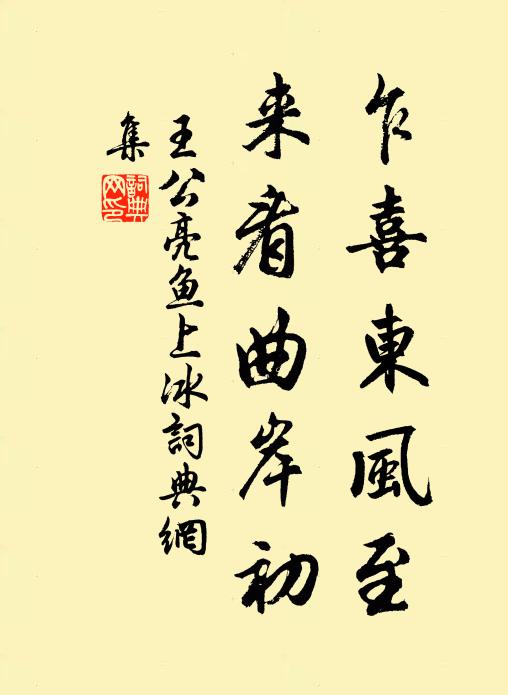 乍喜東風至
来看曲岸初
王公亮魚上冰詞典網
集
詞典
网印